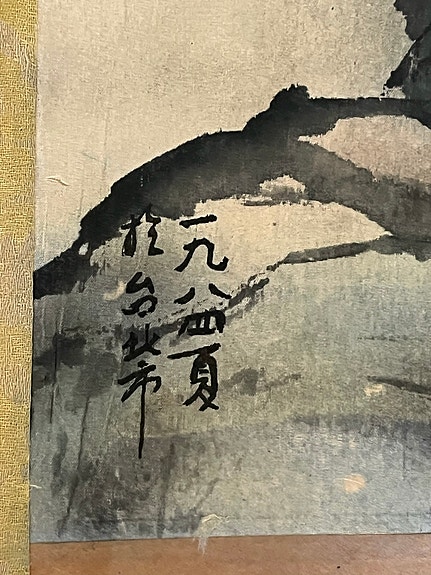 一九八四夏
於台北市